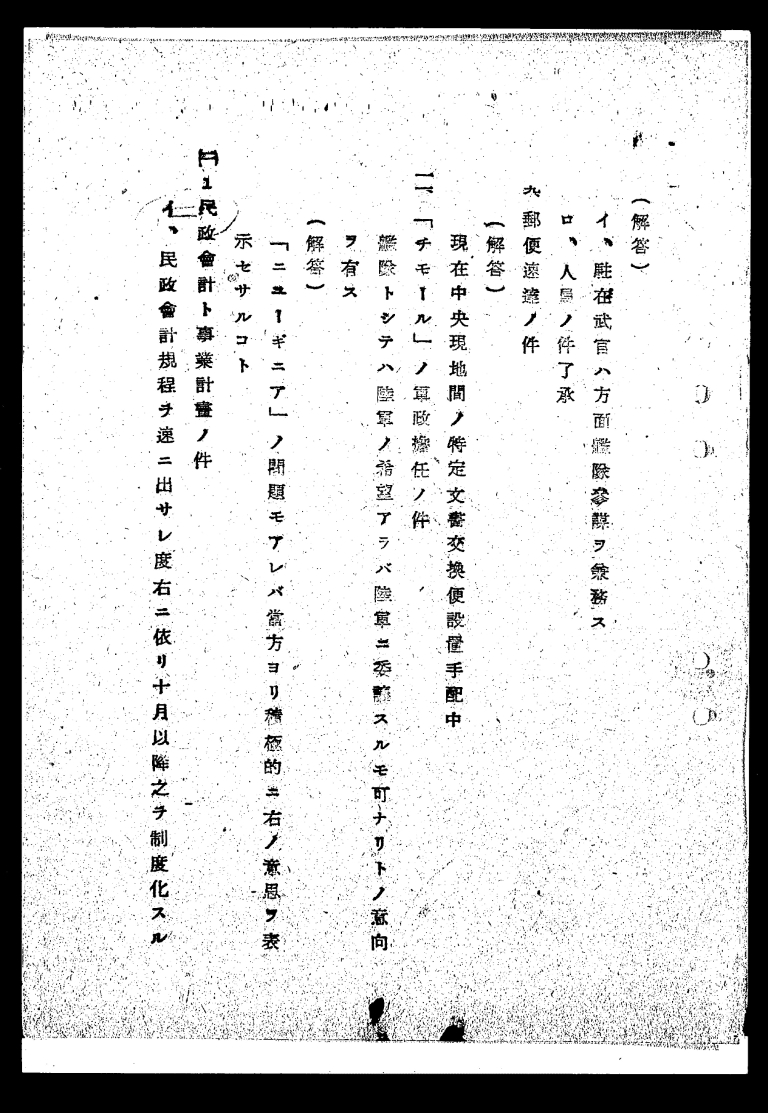 (解答)
イ、駐在武官ハ方面艦隊參謀ヲ兼務ス
ロ、人員ノ件了承
九郵便速達ノ件
(解答)
現在中央現地間ノ特定文書交換便設置手配中
二、「チモール」ノ軍政擔任ノ件
艦隊トシテハ陸軍ノ希望アラバ陸軍ニ委讓スルモ可ナリトノ意向
ヲ有ス
(解答)
「ニユーギニア」ノ問題モアレバ當方ヨリ積極的ニ右ノ意思ヲ表
示セサルコト
1民政會計ト事業計畫ノ件
イ、民政會計規程ヲ速ニ出サレ度右ニ依リ十月以降之ヲ制度化スル